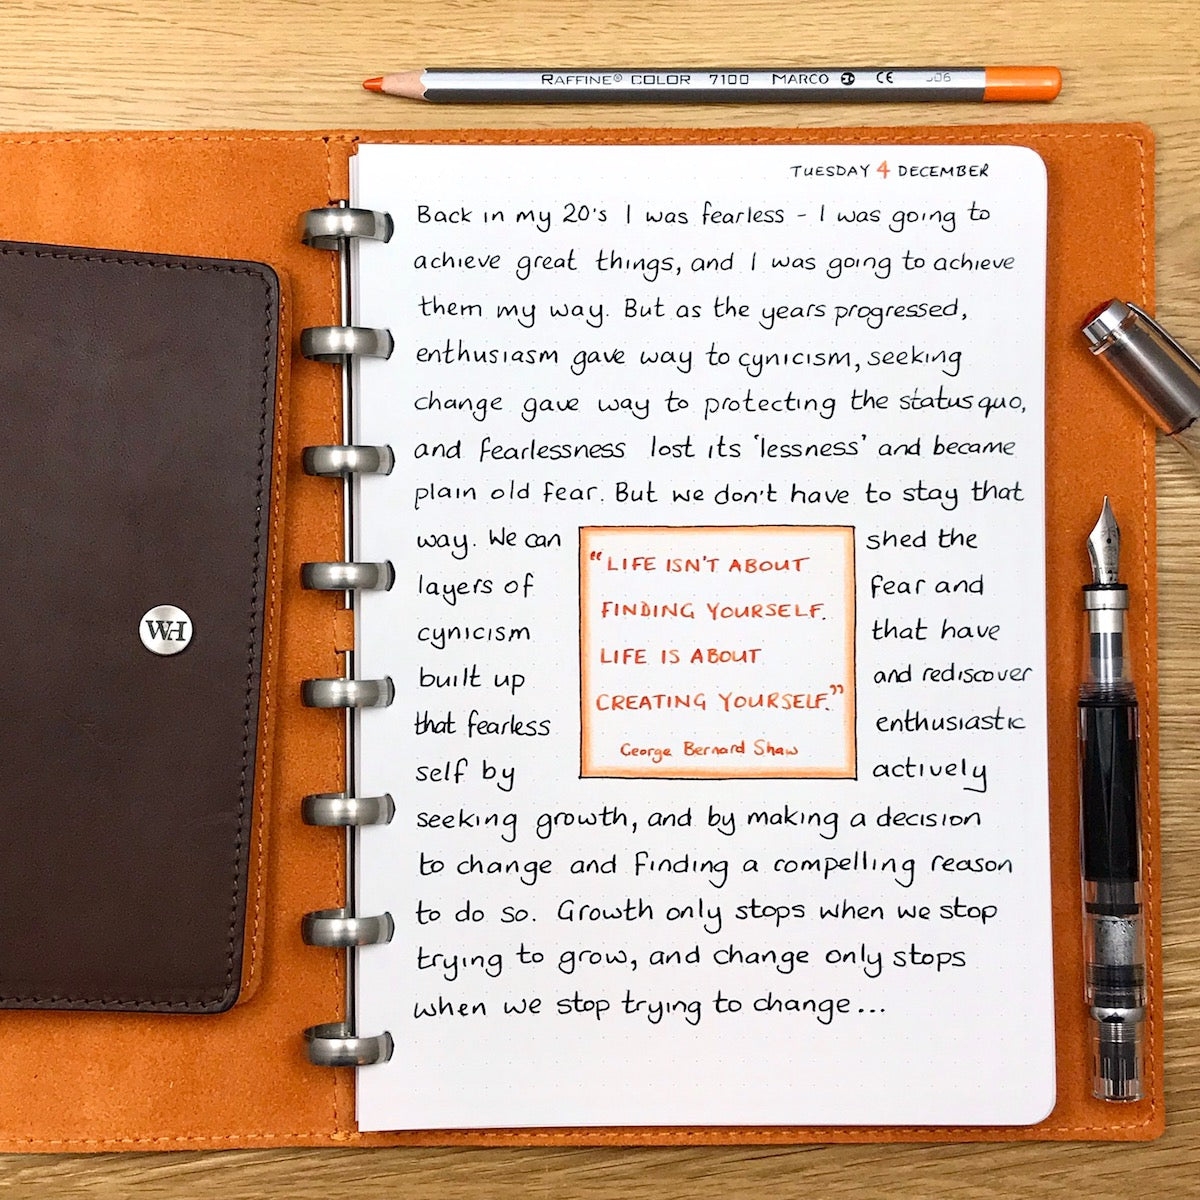 RAFFINE® COLOR 7100 MARCO CE
TUESDAY 4 DECEMBER
Back in my 20's I was fearless - I was going to
achieve great things, and I was going to achieve
them my way. But as the years progressed,
enthusiasm gave way to cynicism, seeking
change gave way to protecting the status quo,
and fearlessness lost its 'lessness' and became
plain old fear. But we don't have to stay that
way. We can shed the
layers of fear and
cynicism that have
built up and rediscover
that fearless enthusiastic
self by actively
"LIFE ISN'T ABOUT
FINDING YOURSELF.
LIFE IS ABOUT
CREATING YOURSELF."
George Bernard Shaw
seeking growth, and by making a decision
to change and finding a compelling reason
to do so. Growth only stops when we stop
trying to grow, and change only stops
when we stop trying to change...
WH